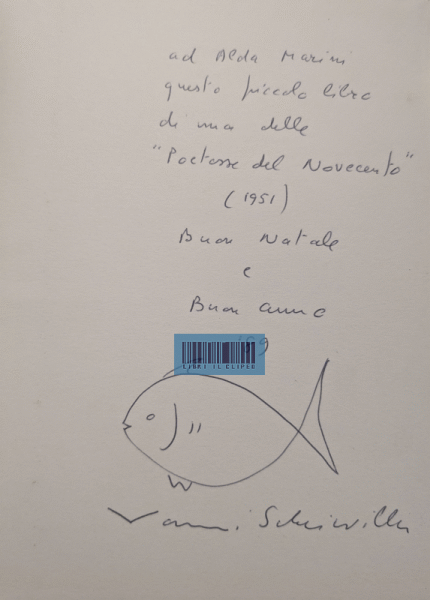 ad Alda Marini
questo piccolo libro
di una delle
"Poetesse del Novecento"
(1951)
Buon Natale
e
Buon anno
Vanni Scheiwiller